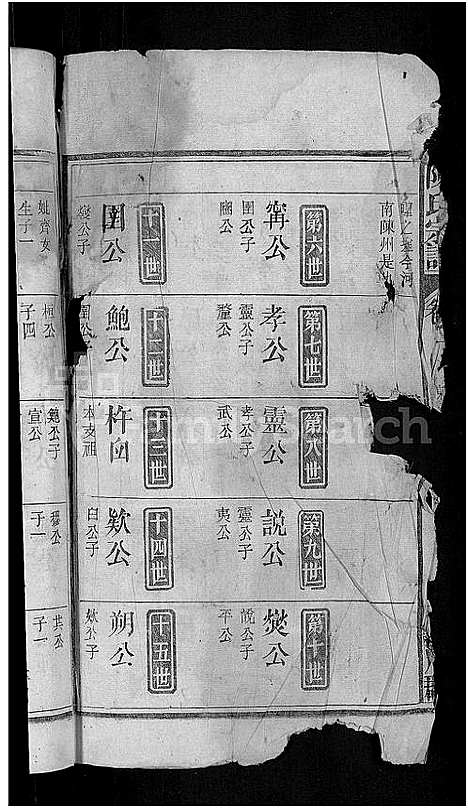 南陳州是
第六世
甯公
圉公子
第七世
孝公
靈公子
釐公
第八世
靈公
孝公子
武公
第九世
説公
靈公子
夷公
第十世
爕公
說公子
平公
十一世
圉公
爕公子
十二世
鮑公
圉公子
十三世
杵臼
本支祖
十四世
欵公
臼公子
十五世
朔公
欵公子
妣齊女
生子一
桓公
子四
宣公
穆公
子一
共公
子一